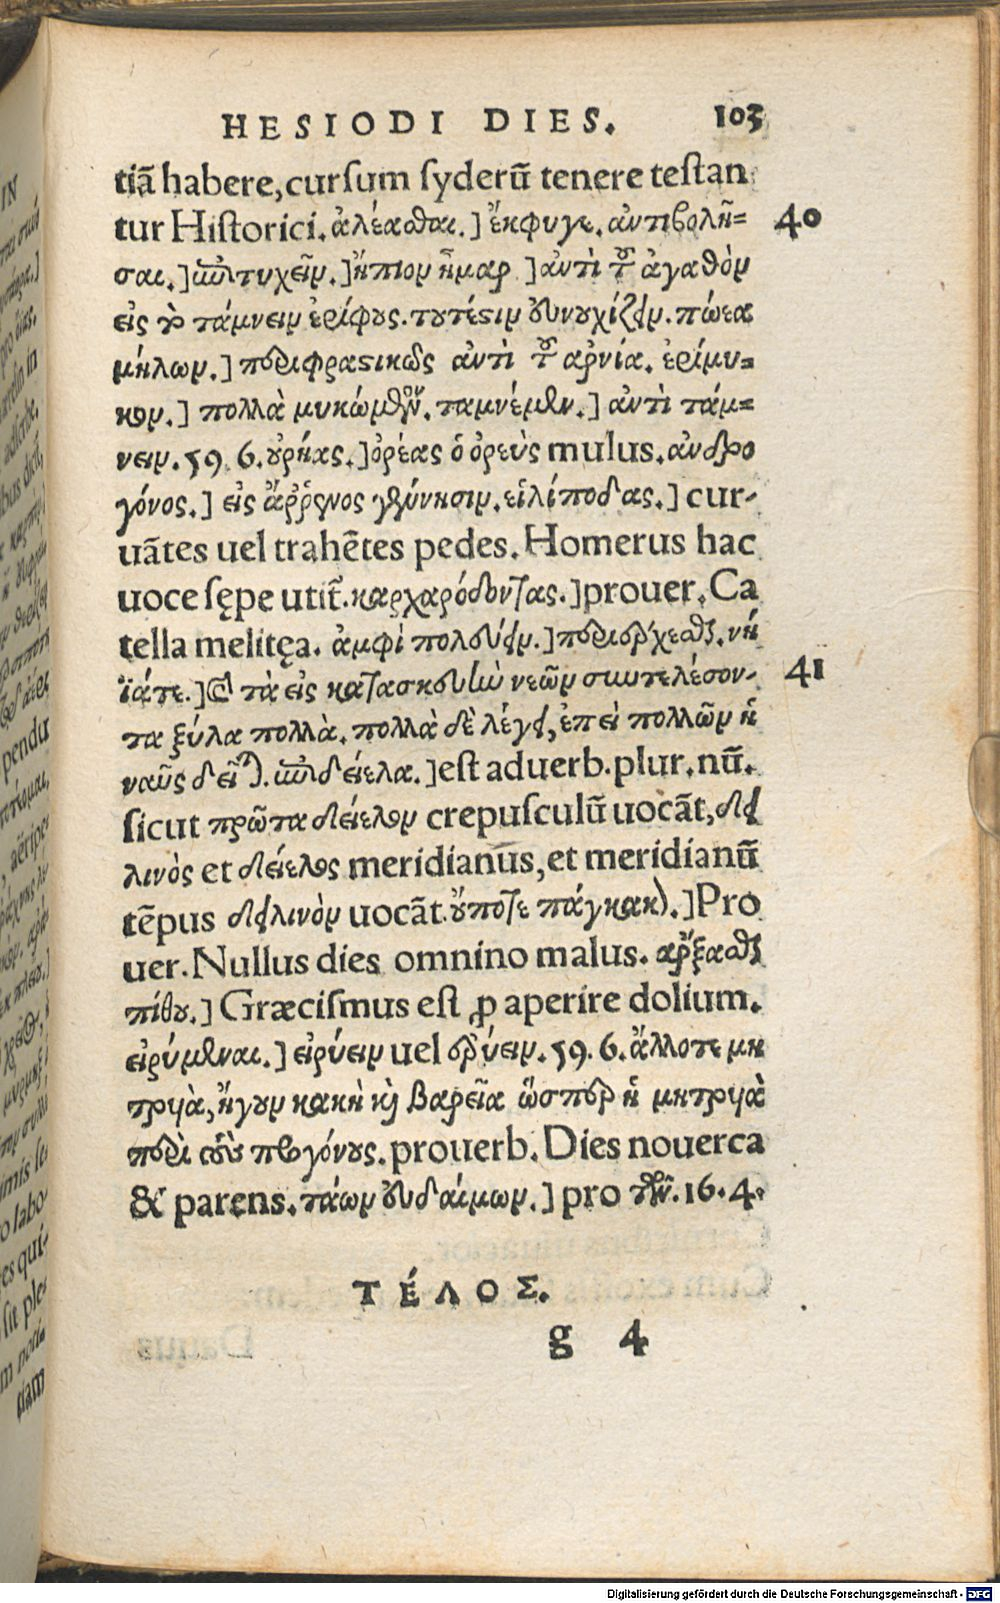 HESIODI DIES. 103
tiã habere, curſum ſyderũ tenere teſtan
tur Hiſtorici. ἀλέασθαι.] ἔκφυγε. ἀντιβολῆ= 40
σαι.] ἐπιτυχεῖν.] ἤπιον ἦμαρ ] ἀντὶ τοῦ ἀγαθὸν
εἰς τὸ τάμνειν ἐρίφους. τουτέστιν εὐνουχίζειν. πώεα
μήλων.] περιφραστικῶς ἀντὶ τοῦ ἀρνία. ἐρίμυ=
κον.] πολλὰ μυκώμενον. ταμνέμεν.] ἀντὶ τάμ=
νειν. 59. 6. οὐρῆας.] ὀρέας ὁ ὀρεὺς mulus. ἀνδρο
γόνος.] εἰς ἄῤῥενος γέννησιν. εἰλίποδας.] cur-
uãtes uel trahẽtes pedes. Homerus hac
uoce ſępe utit̃. καρχαρόδοντας.] prouer. Ca
tella melitęa. ἀμφὶ πολεύειν.] περιέρχεσθαι. νή
ϊάτε.] τὰ εἰς κατασκευὴν νεῶν συντελέσον- 41
τα ξύλα πολλὰ. πολλὰ δὲ λέγει, ἐπεὶ πολλῶν ἡ
ναῦς δεῖται. ἐπιδείελα.] eſt aduerb. plur. nũ.
ſicut πρῶτα δείελον crepuſculũ uocãt, δει
λινὸς et δείελος meridianus, et meridianũ
tẽpus δειλινὸν uocãt. οὔποτε πάγκακον.] Pro
uer. Nullus dies omnino malus. ἄρξασθαι
πίθου.] Græciſmus eſt ꝓ aperire dolium.
εἰρύμεναι.] εἰρύειν uel ἐρύειν. 59. 6. ἄλλοτε μη
τρυιὰ, ἤγουν κακὴ καὶ βαρεῖα ὥσπερ ἡ μητρυιὰ
περὶ τοὺς προγόνους. prouerb. Dies nouerca
& parens. τάων εὐδαίμων.] pro τῶν. 16. 4.
ΤΈΛΟΣ.
g 4
Digitalisierung gefördert durch die Deutsche Forschungsgemeinschaft - DFG